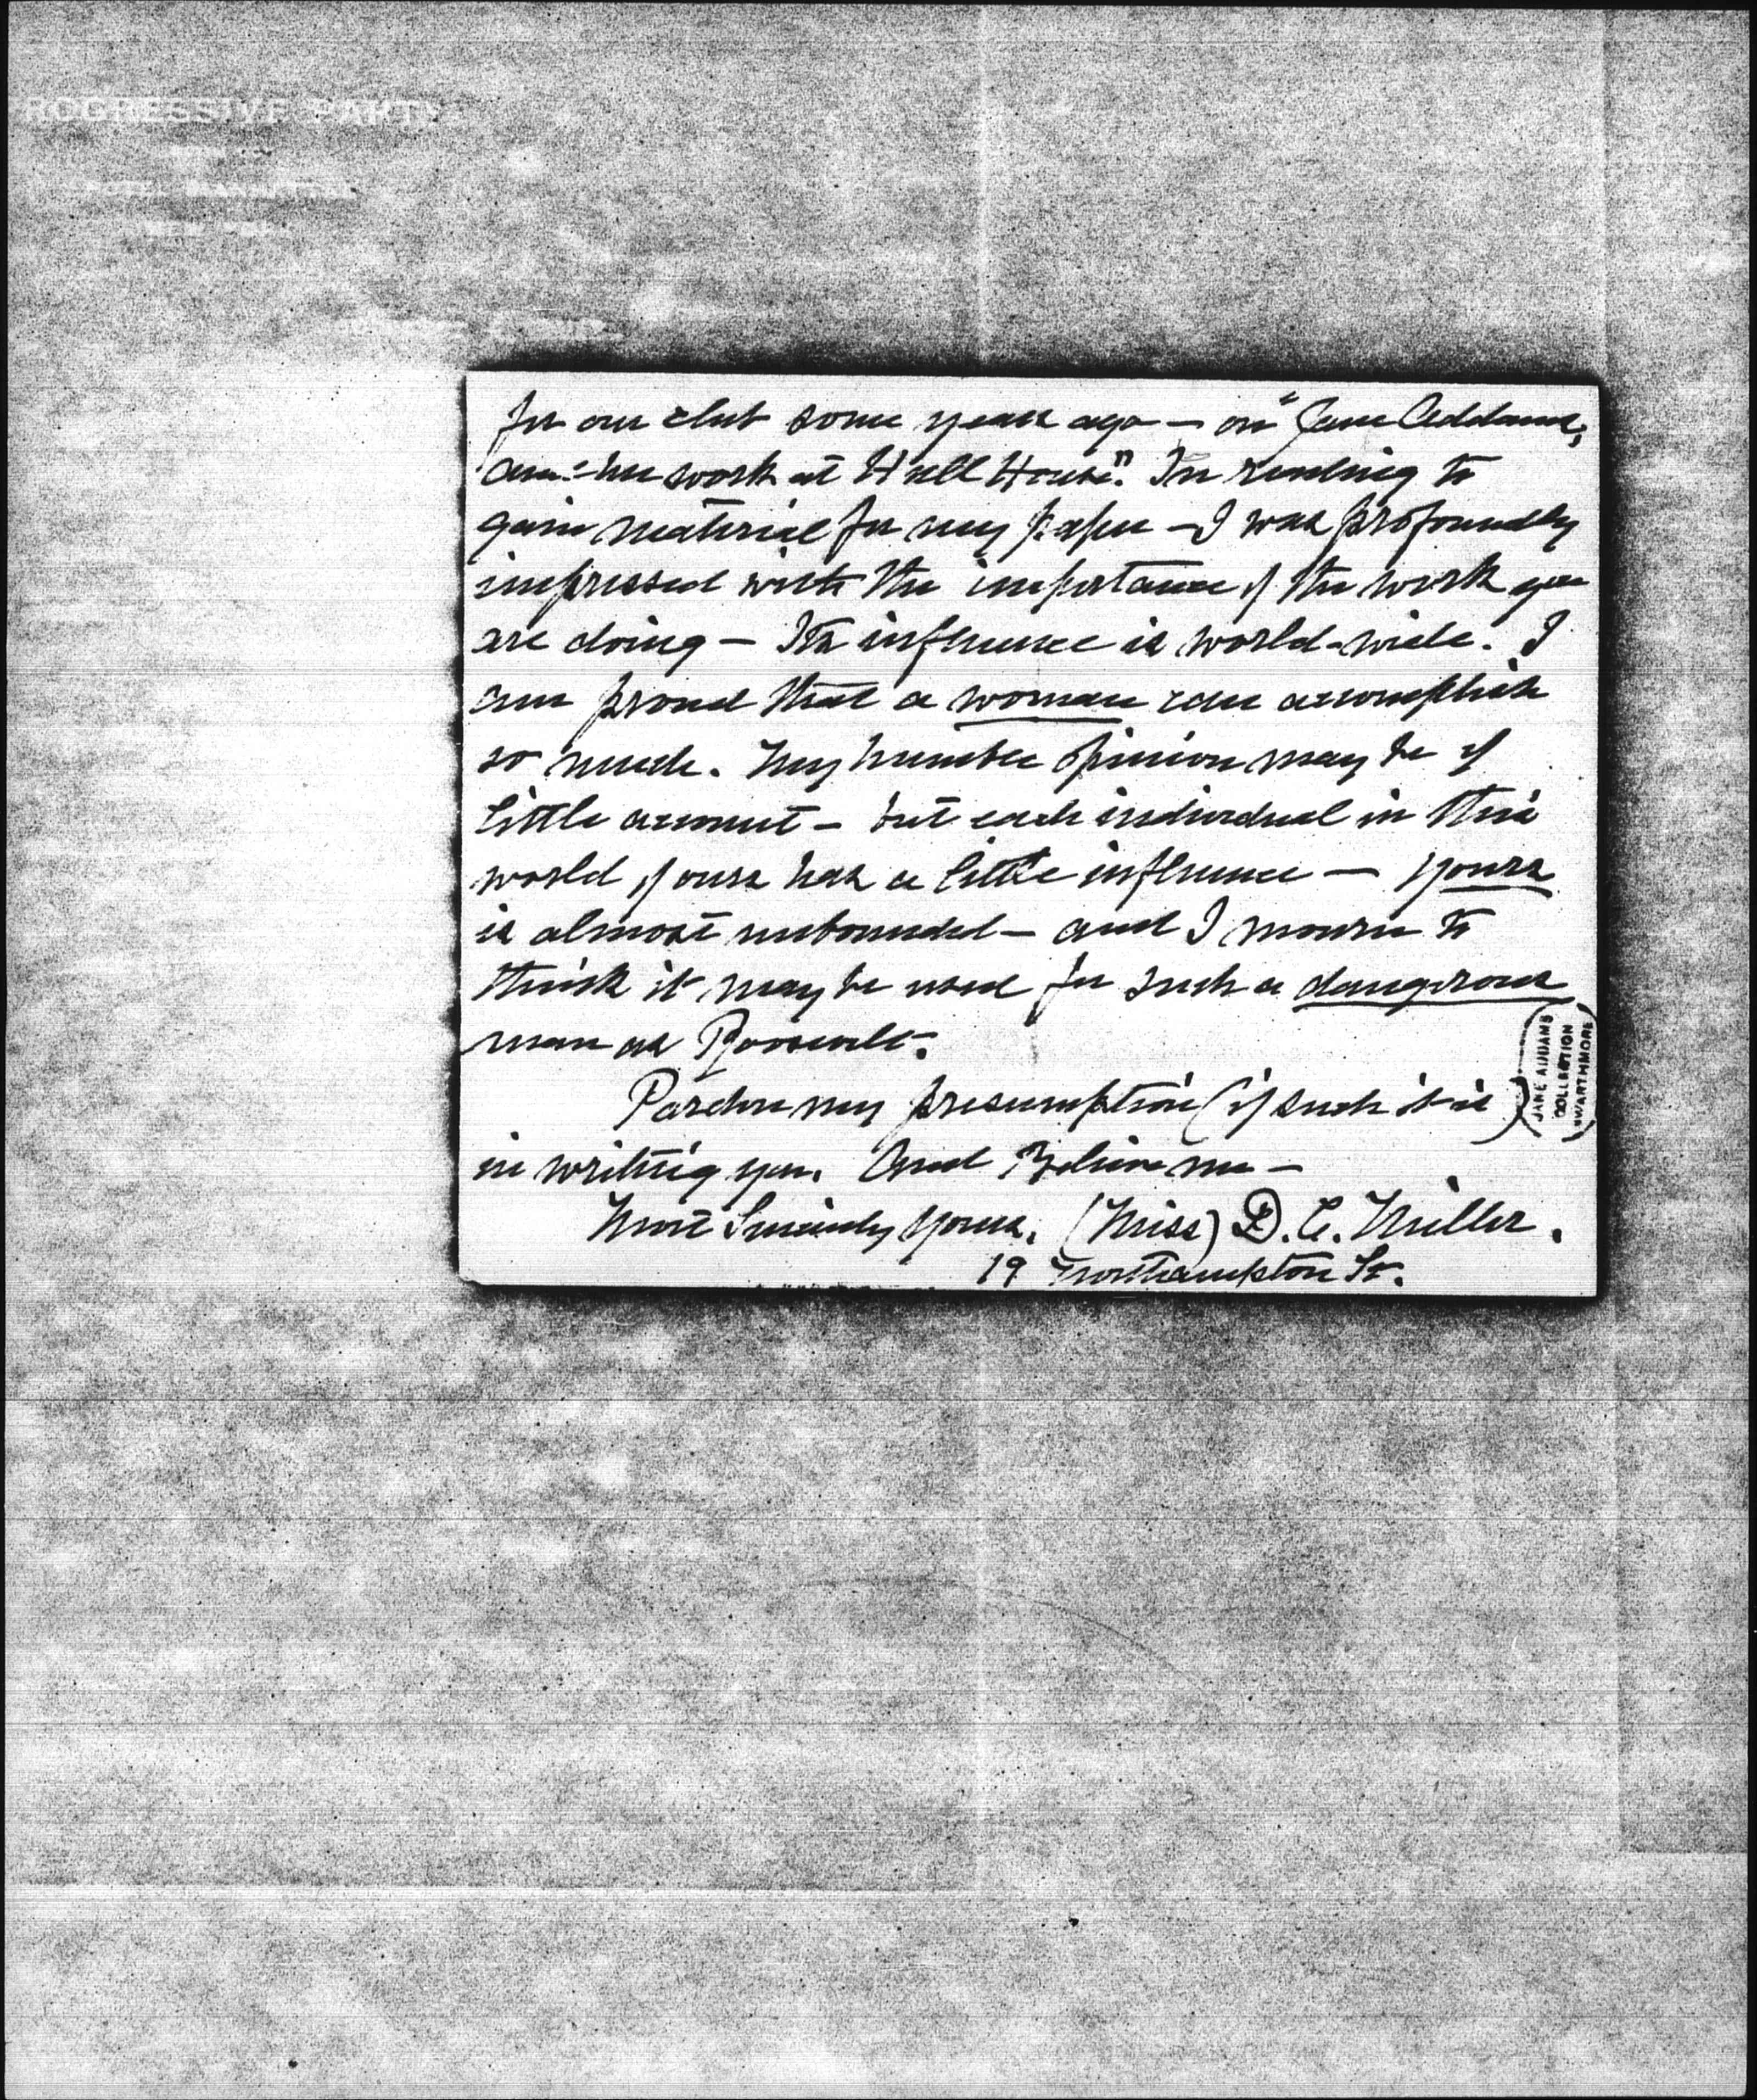 PROGRESSIVE PARTY
for our club some years ago — on "Jane Addams,
and her work at Hull House". In reading to
gain material for my paper — I was profoundly
impressed with the importance of the work you
are doing — Its influence is world-wide. I
am proud that a woman can accomplish
so much. My humble opinion may be of
little account — but each individual in this
world of ours has a little influence — yours
is almost unbounded — and I mourn to
think it may be used for such a dangerous
man as Roosevelt.
Pardon my presumption (if such it is)
in writing you. And Believe me —
Most Sincerely yours, (Miss) D. C. Miller.
19 Northampton St.
JANE ADDAMS
COLLECTION
SWARTHMORE